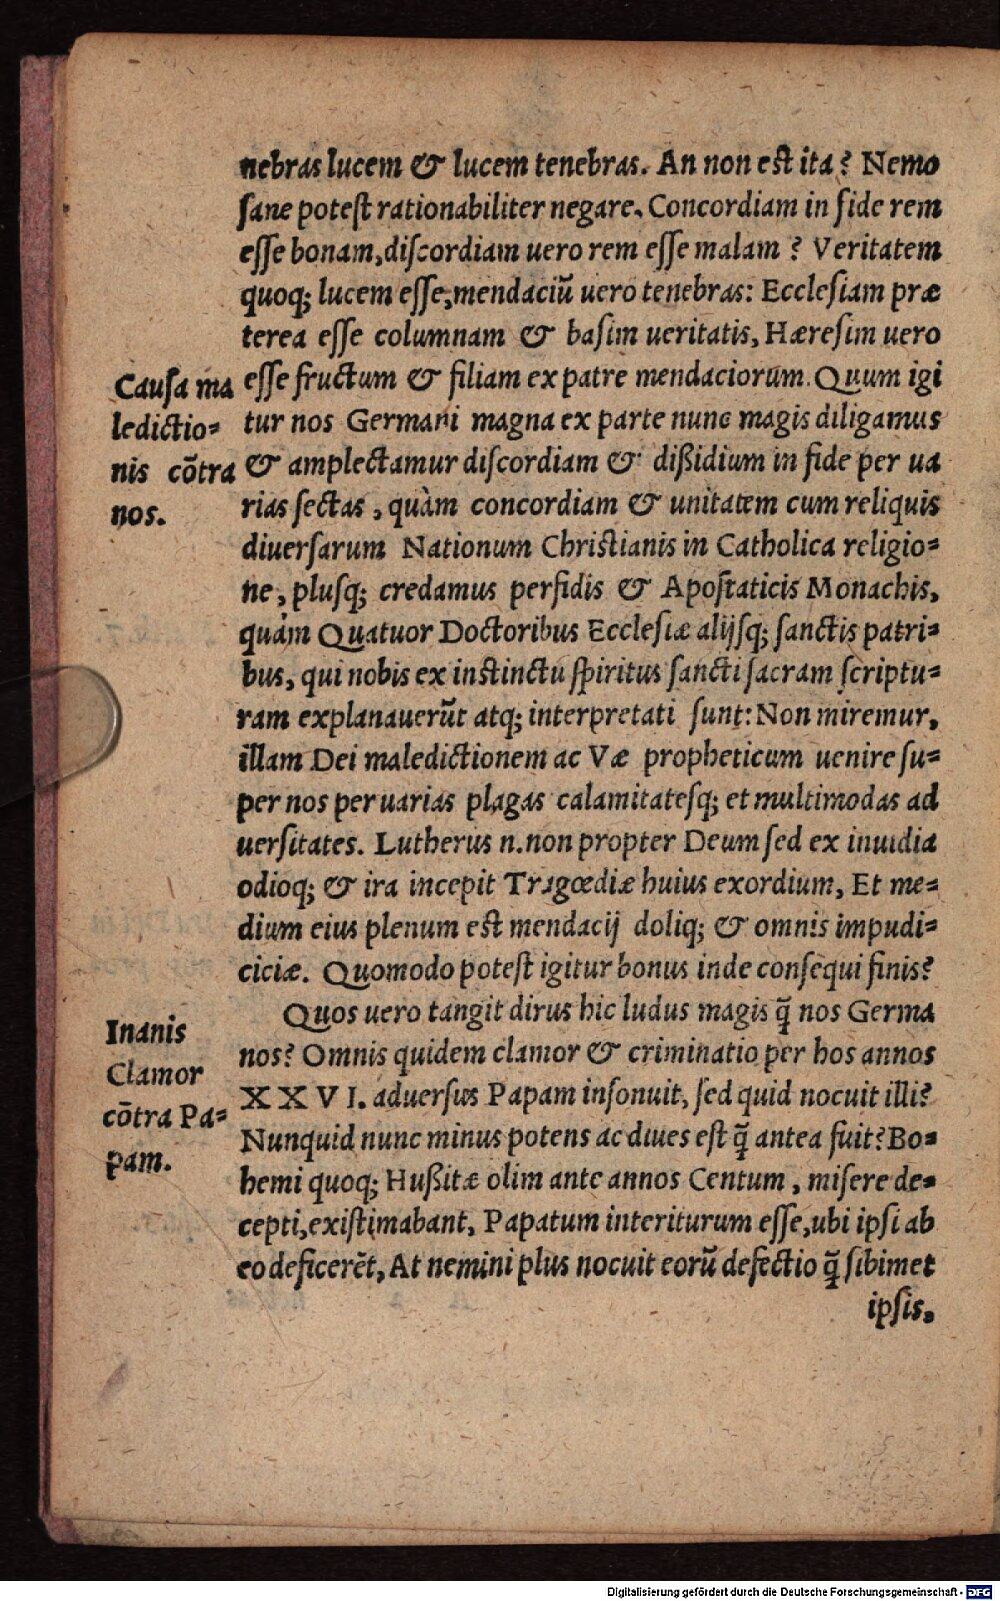 nebras lucem & lucem tenebras. An non est ita? Nemo
sane potest rationabiliter negare. Concordiam in fide rem
esse bonam, discordiam uero rem esse malam? Veritatem
quoq; lucem esse, mendaciū uero tenebras: Ecclesiam præ
terea esse columnam & basim ueritatis, Hæresim uero
esse fructum & filiam ex patre mendaciorum. Quum igi
tur nos Germani magna ex parte nunc magis diligamus
& amplectamur discordiam & dißidium in fide per ua
rias sectas, quàm concordiam & unitatem cum reliquis
diuersarum Nationum Christianis in Catholica religio=
ne, plusq; credamus perfidis & Apostaticis Monachis,
quàm Quatuor Doctoribus Ecclesiæ alijsq; sanctis patri=
bus, qui nobis ex instinctu spiritus sancti sacram scriptu=
ram explanauerūt atq; interpretati sunt: Non miremur,
illam Dei maledictionem ac Væ propheticum uenire su=
per nos per uarias plagas calamitatesq; et multimodas ad
uersitates. Lutherus n. non propter Deum sed ex inuidia
odioq; & ira incepit Tragœdiæ huius exordium, Et me=
dium eius plenum est mendacij doliq; & omnis impudi=
ciciæ. Quomodo potest igitur bonus inde consequi finis?
Quos uero tangit dirus hic ludus magis q̄ nos Germa
nos? Omnis quidem clamor & criminatio per hos annos
XXVI. aduersus Papam insonuit, sed quid nocuit illi?
Nunquid nunc minus potens ac diues est q̄ antea fuit? Bo=
hemi quoq; Hußitæ olim ante annos Centum, misere de=
cepti, existimabant, Papatum interiturum esse, ubi ipsi ab
eo deficerēt, At nemini plus nocuit eorū defectio q̄ sibimet
ipsis.
Causa ma
ledictio=
nis cōtra
nos.
Inanis
Clamor
cōtra Pa=
pam.
Digitalisierung gefördert durch die Deutsche Forschungsgemeinschaft - DFG